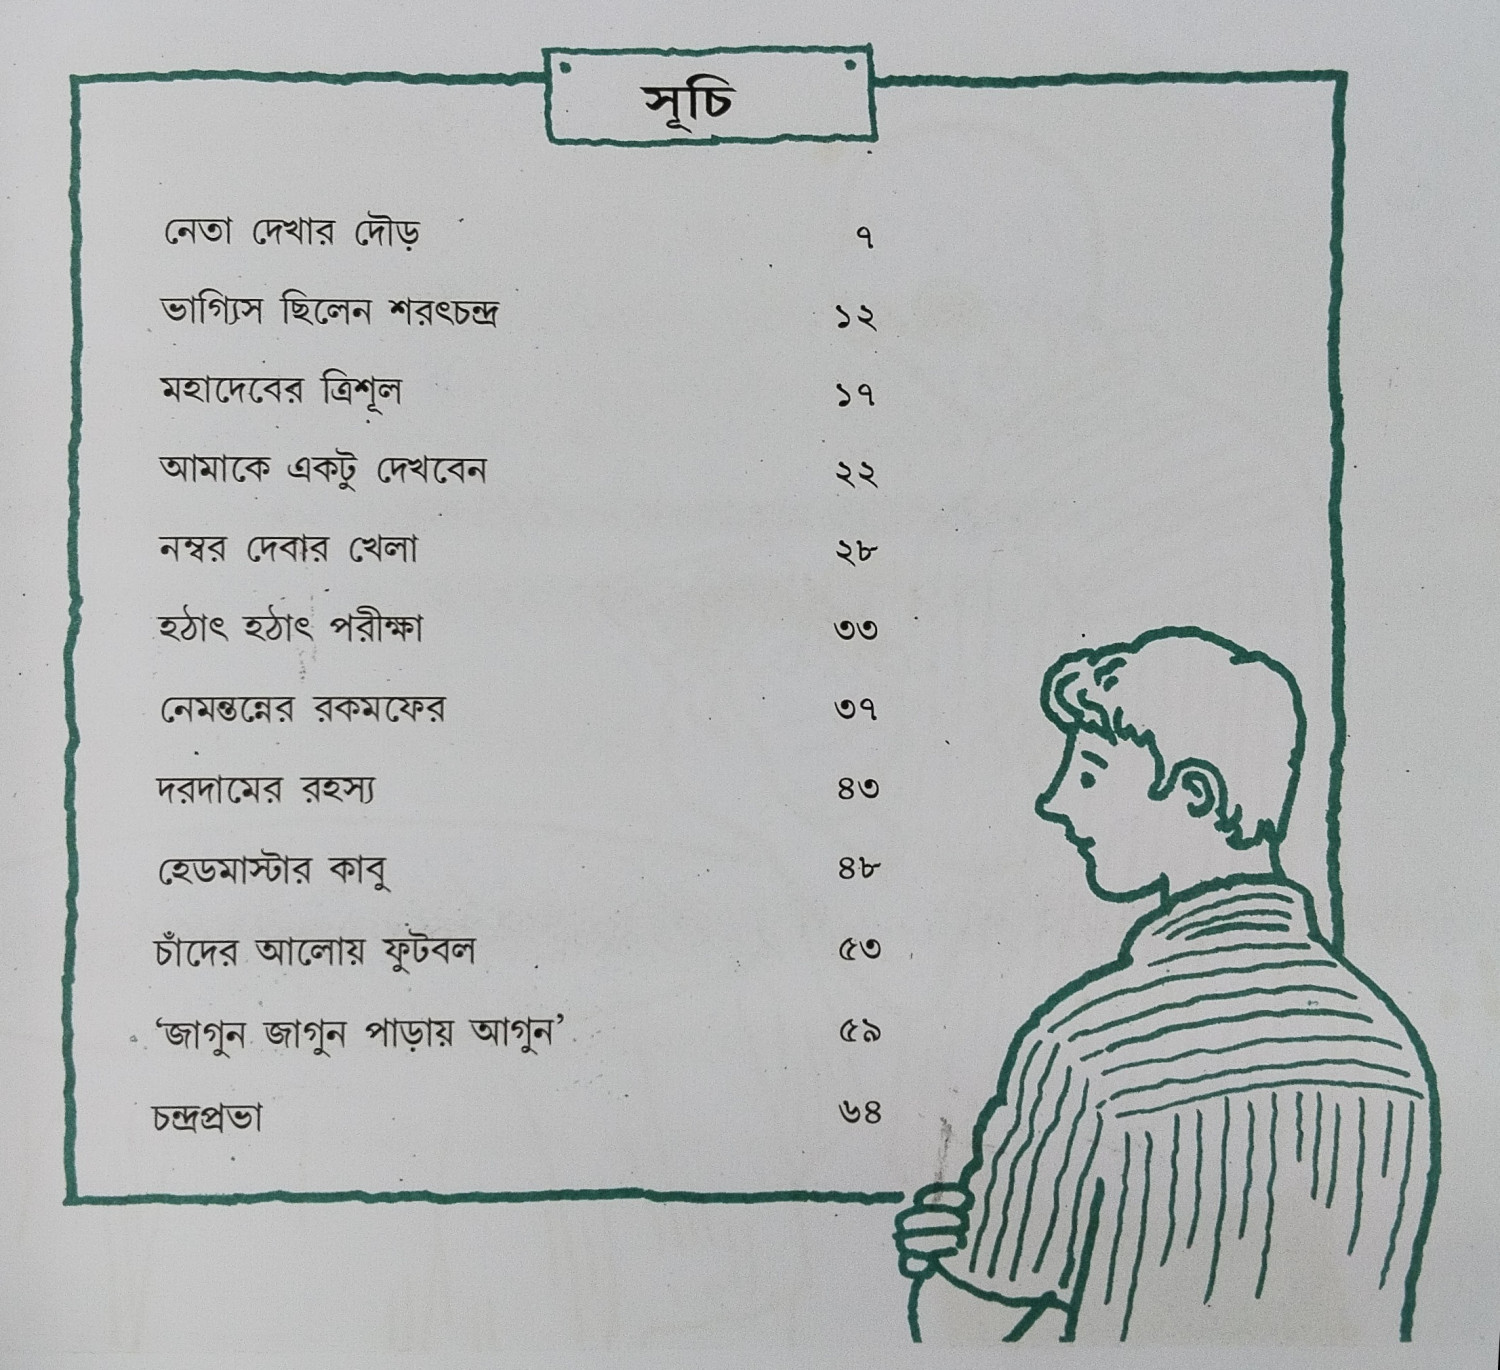 সূচি
নেতা দেখার দৌড় ৭
ভাগ্যিস ছিলেন শরৎচন্দ্র ১২
মহাদেবের ত্রিশূল ১৭
আমাকে একটু দেখবেন ২২
নম্বর দেবার খেলা ২৮
হঠাৎ হঠাৎ পরীক্ষা ৩৩
নেমন্তন্নের রকমফের ৩৭
দরদামের রহস্য ৪৩
হেডমাস্টার কাবু ৪৮
চাঁদের আলোয় ফুটবল ৫৩
‘জাগুন জাগুন পাড়ায় আগুন’ ৫৯
চন্দ্রপ্রভা ৬৪